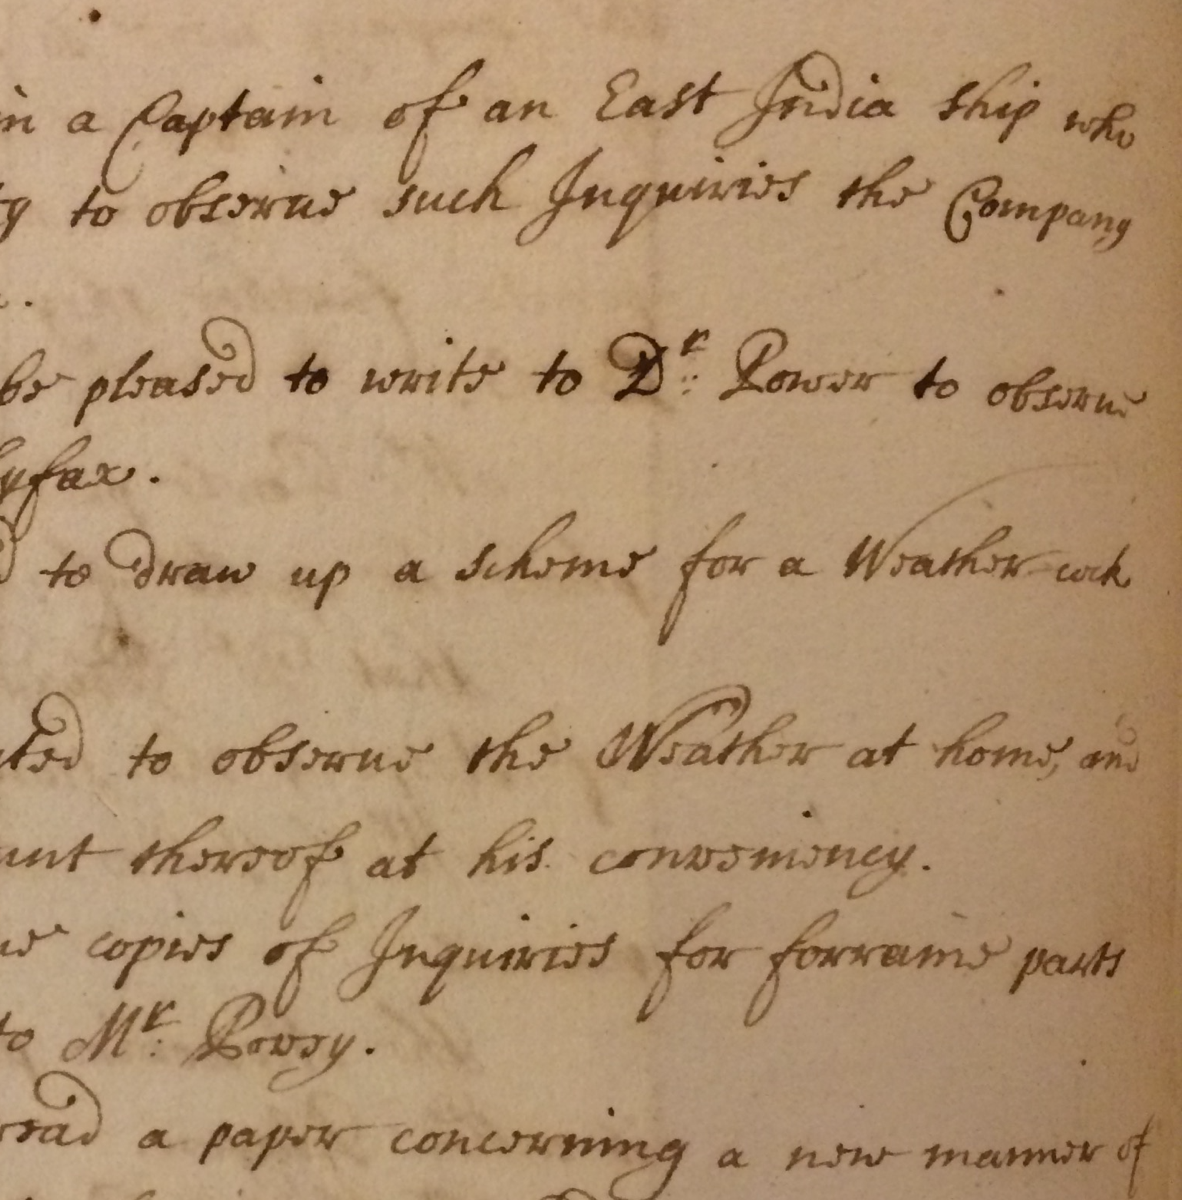 in a Captain of an East India ship who
to observe such Inquiries the Company
be pleased to write to Dr: Power to observe
lyfax.
to draw up a scheme for a Weather cock
to observe the Weather at home, and
thereof at his conveniency.
copies of Inquiries for forraine parts
to Mr: Povey.
read a paper concerning a new manner of